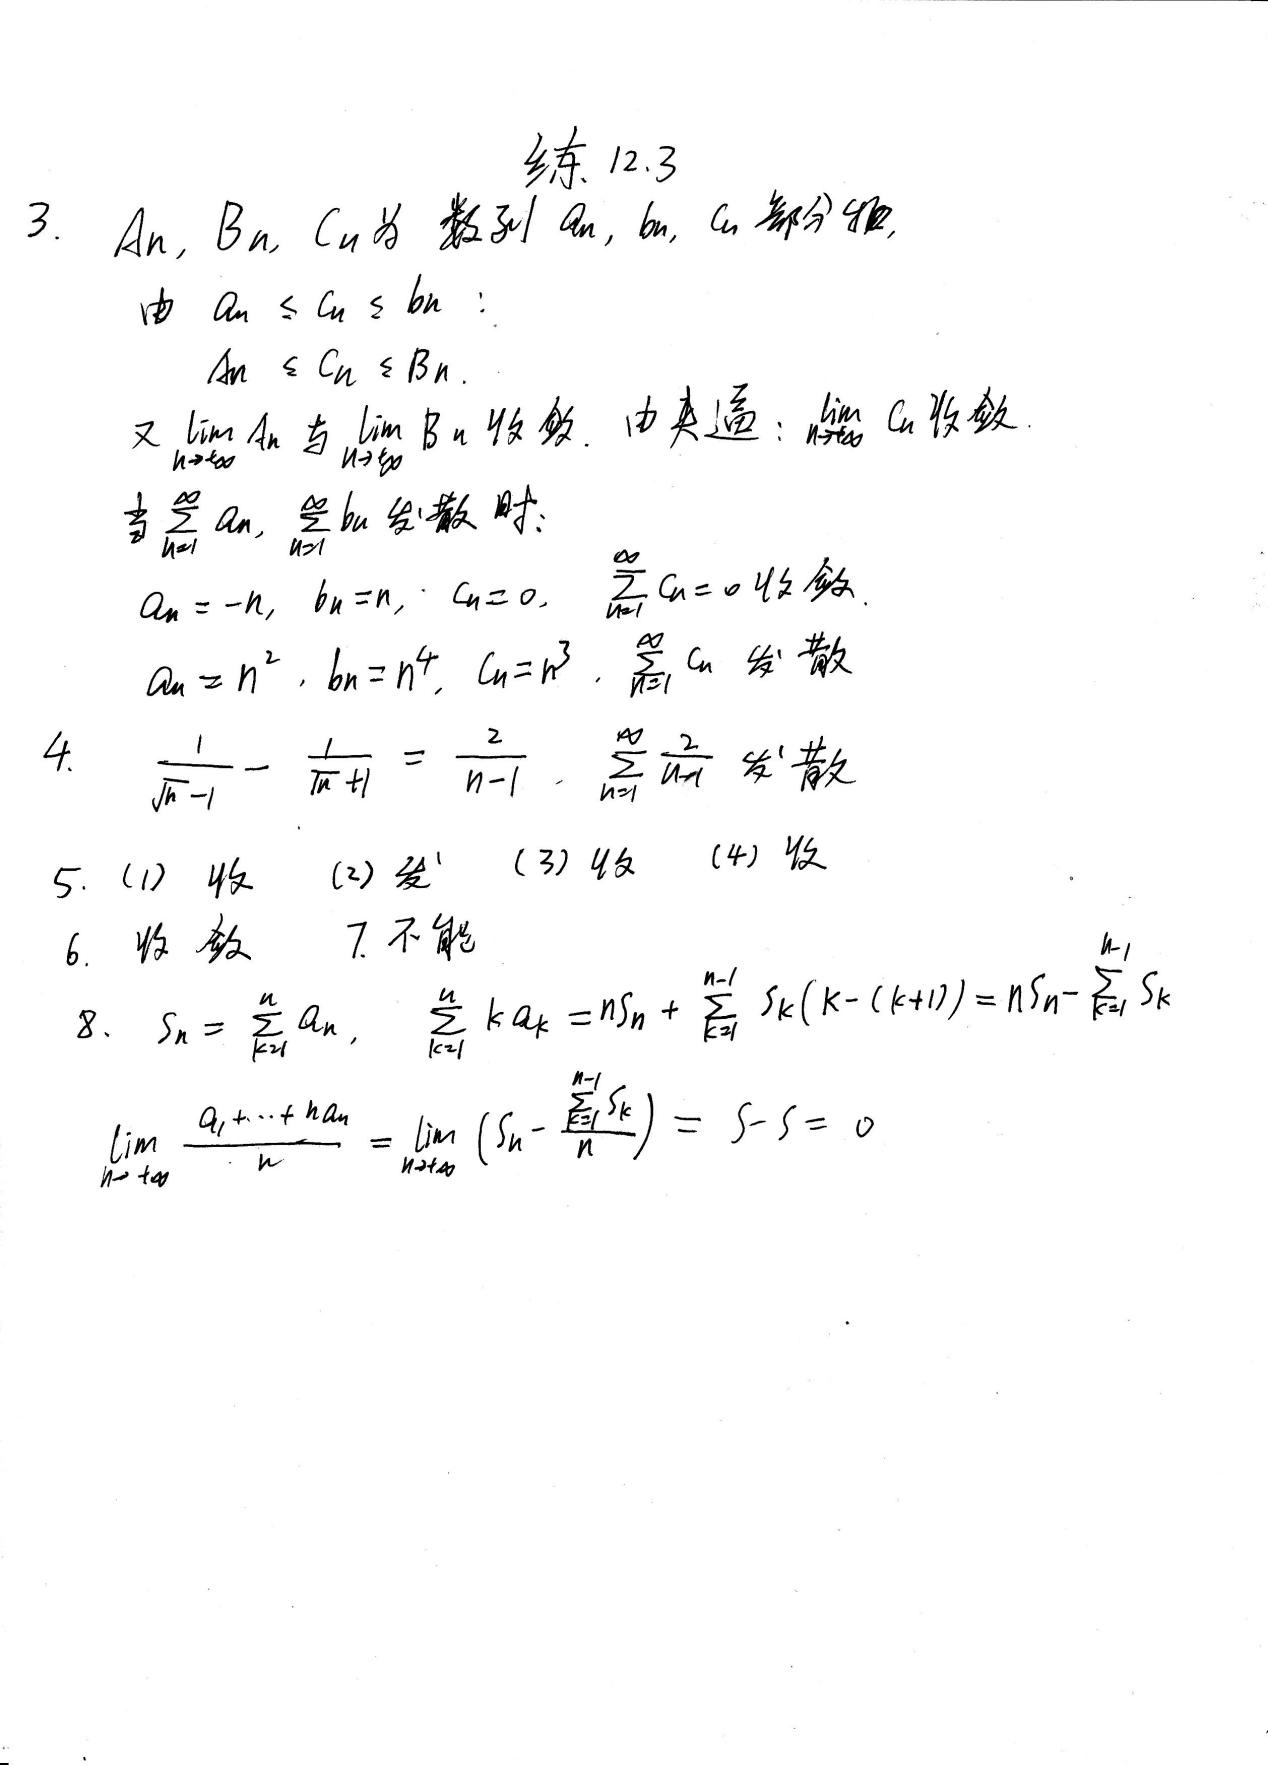 练 12.3
3. An, Bn, Cn为 数列 an, bn, cn 部分和,
由 an ≤ cn ≤ bn :
An ≤ Cn ≤ Bn.
又 lim n→+∞ An 与 lim n→+∞ Bn 收敛. 由夹逼: lim n→+∞ Cn 收敛.
当 ∑_{n=1}^{∞} an, ∑_{n=1}^{∞} bn 发散时:
an = -n, bn = n, cn = 0, ∑_{n=1}^{∞} cn = 0 收敛.
an = n², bn = n⁴, cn = n³, ∑_{n=1}^{∞} cn 发散
4. 1/(√n - 1) - 1/(√n + 1) = 2/(n-1). ∑_{n=1}^{∞} 2/(n-1) 发散
5. (1) 收 (2) 发 (3) 收 (4) 收
6. 收敛 7. 不能
8. Sn = ∑_{k=1}^{n} an, ∑_{k=1}^{n} k ak = nSn + ∑_{k=1}^{n-1} Sk(k-(k+1)) = nSn - ∑_{k=1}^{n-1} Sk
lim n→+∞ (a₁+⋯+nan)/n = lim n→+∞ (Sn - (∑_{k=1}^{n-1} Sk)/n) = S-S = 0